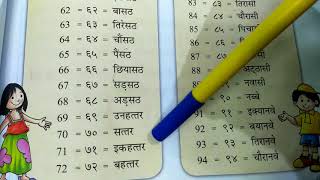 62 = ६२ = बासठ
63 = ६३ = तिरेसठ
64 = ६४ = चौंसठ
65 = ६५ = पैंसठ
66 = ६६ = छियासठ
67 = ६७ = सड़सठ
68 = ६८ = अड़सठ
69 = ६९ = उनहत्तर
70 = ७० = सत्तर
71 = ७१ = इकहत्तर
72 = ७२ = बहत्तर
83 = ८३ = तिरासी
84 = ८४ = चौरासी
85 = ८५ =
86 = ८६
87
88 = अट्ठासी
= नवासी
९० = नब्बे
91 = ९१ = इक्यानवे
92 = ९२ = बयानवे
93 = ९३ = तिरानवे
94 = ९४ = चौरानवे